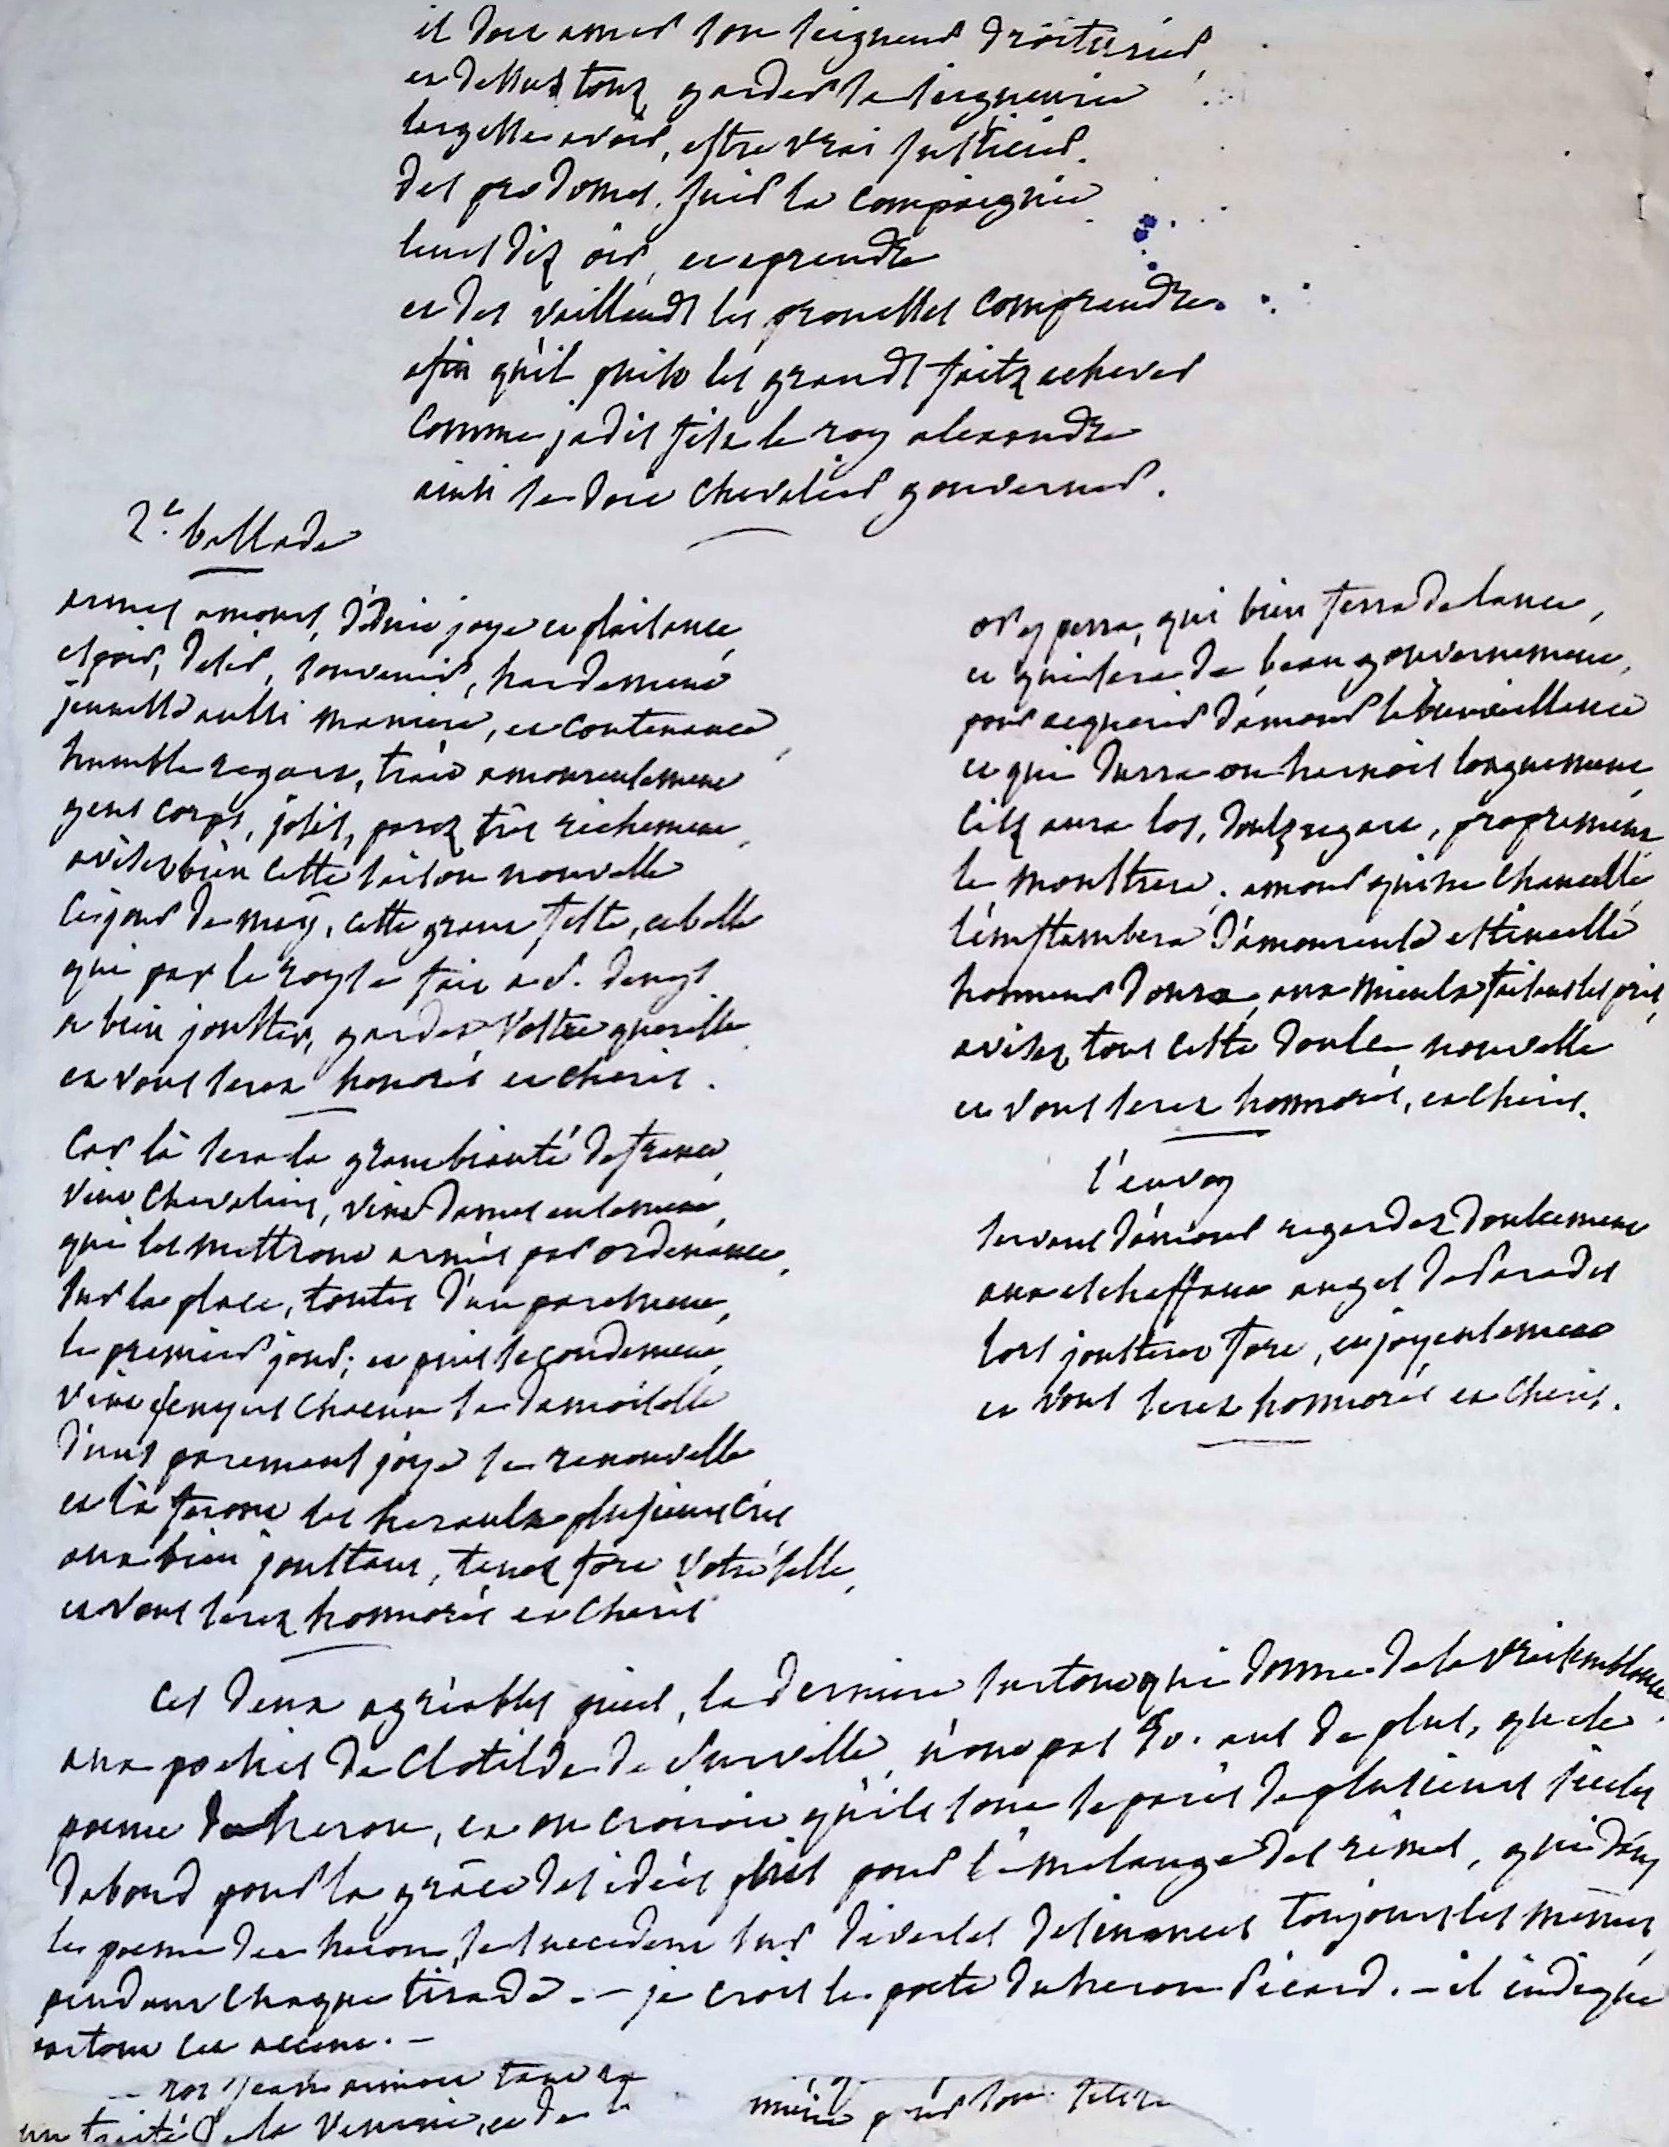 il doit amer son seigneur droiturier,
et dessus touz garder sa seigneurie
largesse avoir, estre vrai justicier.
des prodomes suir la compaignie
leurs diz oir, et aprendre
et des vaillands les prouesses comprendre.
afin qu'il puist les grands faitz achever
comme jadis fist le roy alexandre
ainsi se doit chevalier gouverner.
2e. ballade
armes amours, déduit joye et plaisance,
espoir, desir, souvenir, hardement
jeunesse aussi maniere, et contenance,
humble regart, trait amoureusement
gens corps, jolis, parez très richement,
avisez bien cette saison nouvelle
ce jour de may, cette grant feste, et belle
qui par le roy se fait a s. denys
a bien jouster, gardez vostre querelle
et vous serez honorés et cheris.
car là sera la grant biauté de france,
vint chevaliers, vint dames ensement,
qui les mettront armés par ordenance,
sur la place, toutes d'un parement,
le premier jour; et puis secondement,
vint escuyers chacun sa damoiselle
d'uns parements joye se renouvelle
et là feront les heraulx plusieurs cris
aux bien joustans, tenez fort votre selle,
et vous serez honnorés et cheris
or y perra, qui bien ferra de lance,
et qui sera de beau gouvernement,
pour acquerir d'amour la bienveillance
et qui durra ou harnois longuement
cilz aura los, doulz regart, proprement
le monstrera; amour qui ne chancelle
l'enflambera d'amoureuse estincelle
honneur donra, aux mieulx faisans les pris,
avisez tous cette doulce nouvelle
et vous serez honnorés, et cheris.
l'envoy
servans d'amour regardez doulcement
aux eschaffaux anges de paradis
lors jousterez fort, et joyeusement
et vous serez honnorés et cheris.
ces deux agréables pieces, la derniere surtout qui donne de la vraisemblance
aux poesies de Clotilde de Surville, n'ont pas 50. ans de plus, que le
poeme du heron, et on croirait qu'ils sont separés de plusieurs siecles
dabord pour la grâce des idées puis pour le melange des rimes, qui dans
le poeme du heron, se succedent sur diverses desinances toujours les mêmes,
pendant chaque tirade. — je crois le poete du heron Picard. — il indique
partout cet accent. —
roy jean
un traité de la venerie, et de